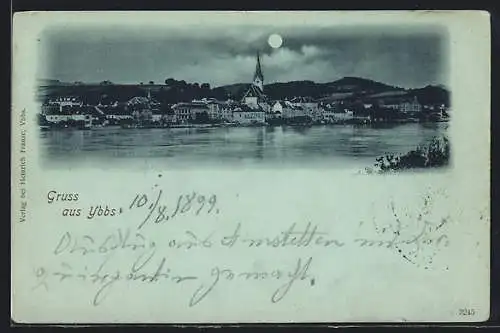 Verlag bei Heinrich Frauer, Ybbs.
Gruss
aus Ybbs
10/8. 1899.
Ausflug aus Amstetten
gemacht.
3245